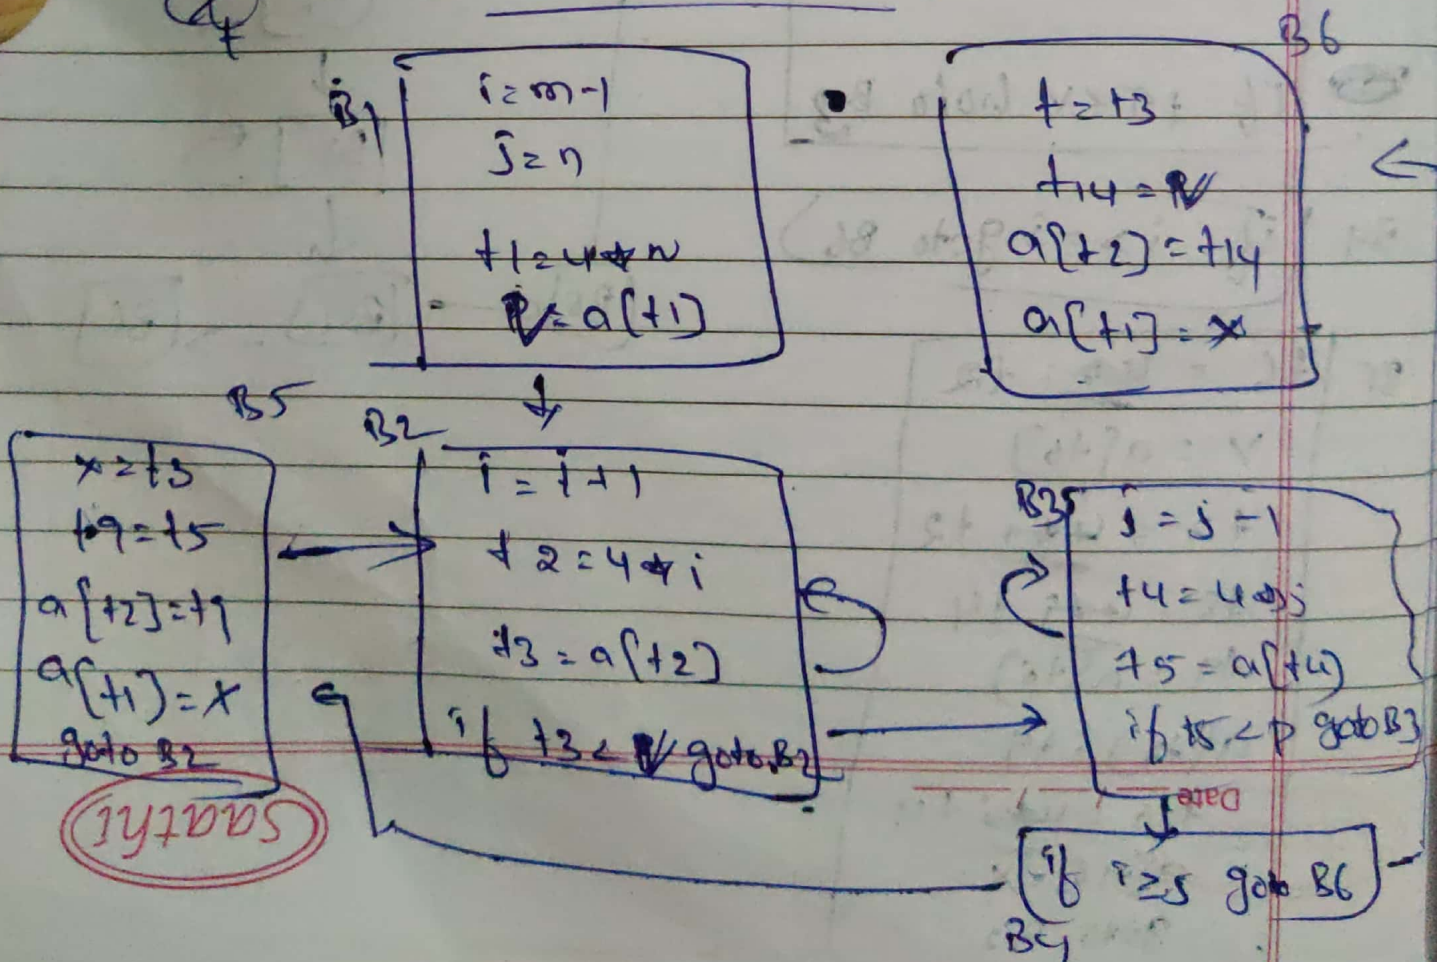 B1
i=m-1
j=n
t1=4*n
v=a[t1]
B6
t=t3
t14=v
a[t2]=t14
a[t1]=x
B5
x=t3
t9=t5
a[t2]=t9
a[t1]=x
goto B2
B2
i=i+1
t2=4*i
t3=a[t2]
if t3<v goto B2
B3
j=j-1
t4=4*j
t5=a[t4]
if t5<v goto B3
Saathi
Date
if i≥j goto B6
B4